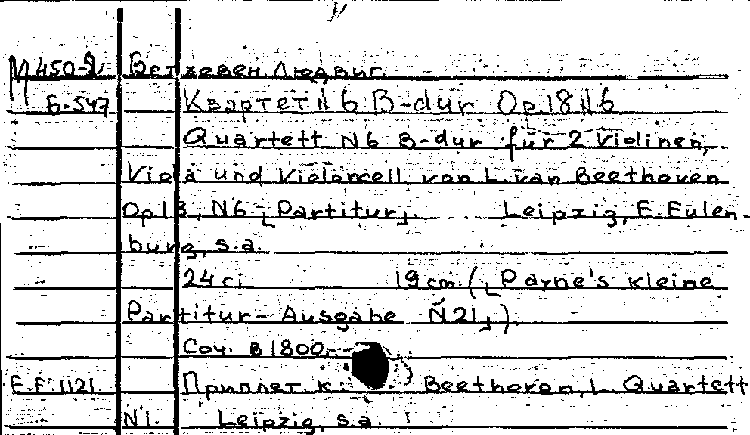 М450-2 Бетховен, Людвиг.
Б-547 Квартет N6 B-dur Op.18 N6
Quartett N6 B-dur für 2 Violinen,
Viola und Violoncell von L. van Beethoven
Op.18, N6 [Partitur]. Leipzig, E. Eulen-
burg, s.a.
24 с. 19cm. ([Payne's kleine
Partitur-Ausgabe N21]).
Соч. в 1800.
E.E. 1121. Приплет к: Beethoven, L. Quartett
N1. Leipzig, s.a.